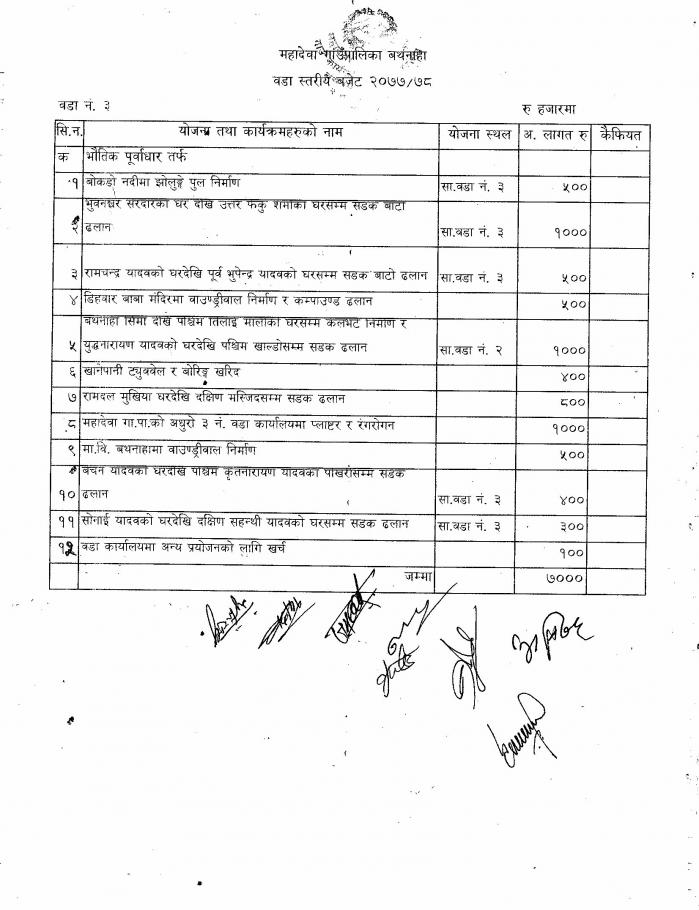 महादेवा गाउँपालिका बर्थनाहा
वडा स्तरीय बजेट २०७७/७८
वडा नं. ३
रु हजारमा
सि.न. योजना तथा कार्यक्रमहरुको नाम योजना स्थल अ. लागत रु कैफियत
क भौतिक पूर्वाधार तर्फ
१ बोकडो नदीमा झोलुङ्गे पुल निर्माण सा.वडा नं. ३ ५००
भुवनेश्वर सरदारको घर देखि उत्तर फकु शर्माको घरसम्म सडक बाटो
२ ढलान सा.वडा नं. ३ १०००
३ रामचन्द्र यादवको घरदेखि पूर्व भुपेन्द्र यादवको घरसम्म सडक बाटो ढलान सा.वडा नं. ३ ५००
४ डिहवार बाबा मंदिरमा वाउण्ड्रीवाल निर्माण र कम्पाउण्ड ढलान ५००
बथनाहा सिमा देखि पश्चिम तिलाइ मालीको घरसम्म कलभर्ट निर्माण र
५ युद्धनारायण यादवको घरदेखि पश्चिम खाल्डोसम्म सडक ढलान सा.वडा नं. २ १०००
६ खानेपानी ट्युववेल र बोरिङ्ग खरिद ४००
७ रामदल मुखिया घरदेखि दक्षिण मस्जिदसम्म सडक ढलान ८००
८ महादेवा गा.पा.को अधुरो ३ नं. वडा कार्यालयमा प्लाष्टर र रंगरोगन १०००
९ मा.वि. बथनाहामा वाउण्ड्रीवाल निर्माण ५००
बेचन यादवको घरदेखि पश्चिम कृतनारायण यादवको पोखरीसम्म सडक
१० ढलान सा.वडा नं. ३ ४००
११ सोनाई यादवको घरदेखि दक्षिण सहन्थी यादवको घरसम्म सडक ढलान सा.वडा नं. ३ ३००
१२ वडा कार्यालयमा अन्य प्रयोजनको लागि खर्च १००
जम्मा ७०००